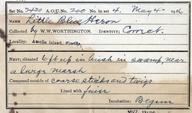 Set 2420 A.O.U. No. 200 No. in set 4. May 4th
Name Little Blue Heron
Collected by W.W. WORTHINGTON. Identity; Correct.
Locality: Amelia Island, Florida
Nest; 6 ft. up in bush in swamp, near
a large marsh
Composed mostly of coarse sticks and twigs
Lined with finer
Incubation: Begun